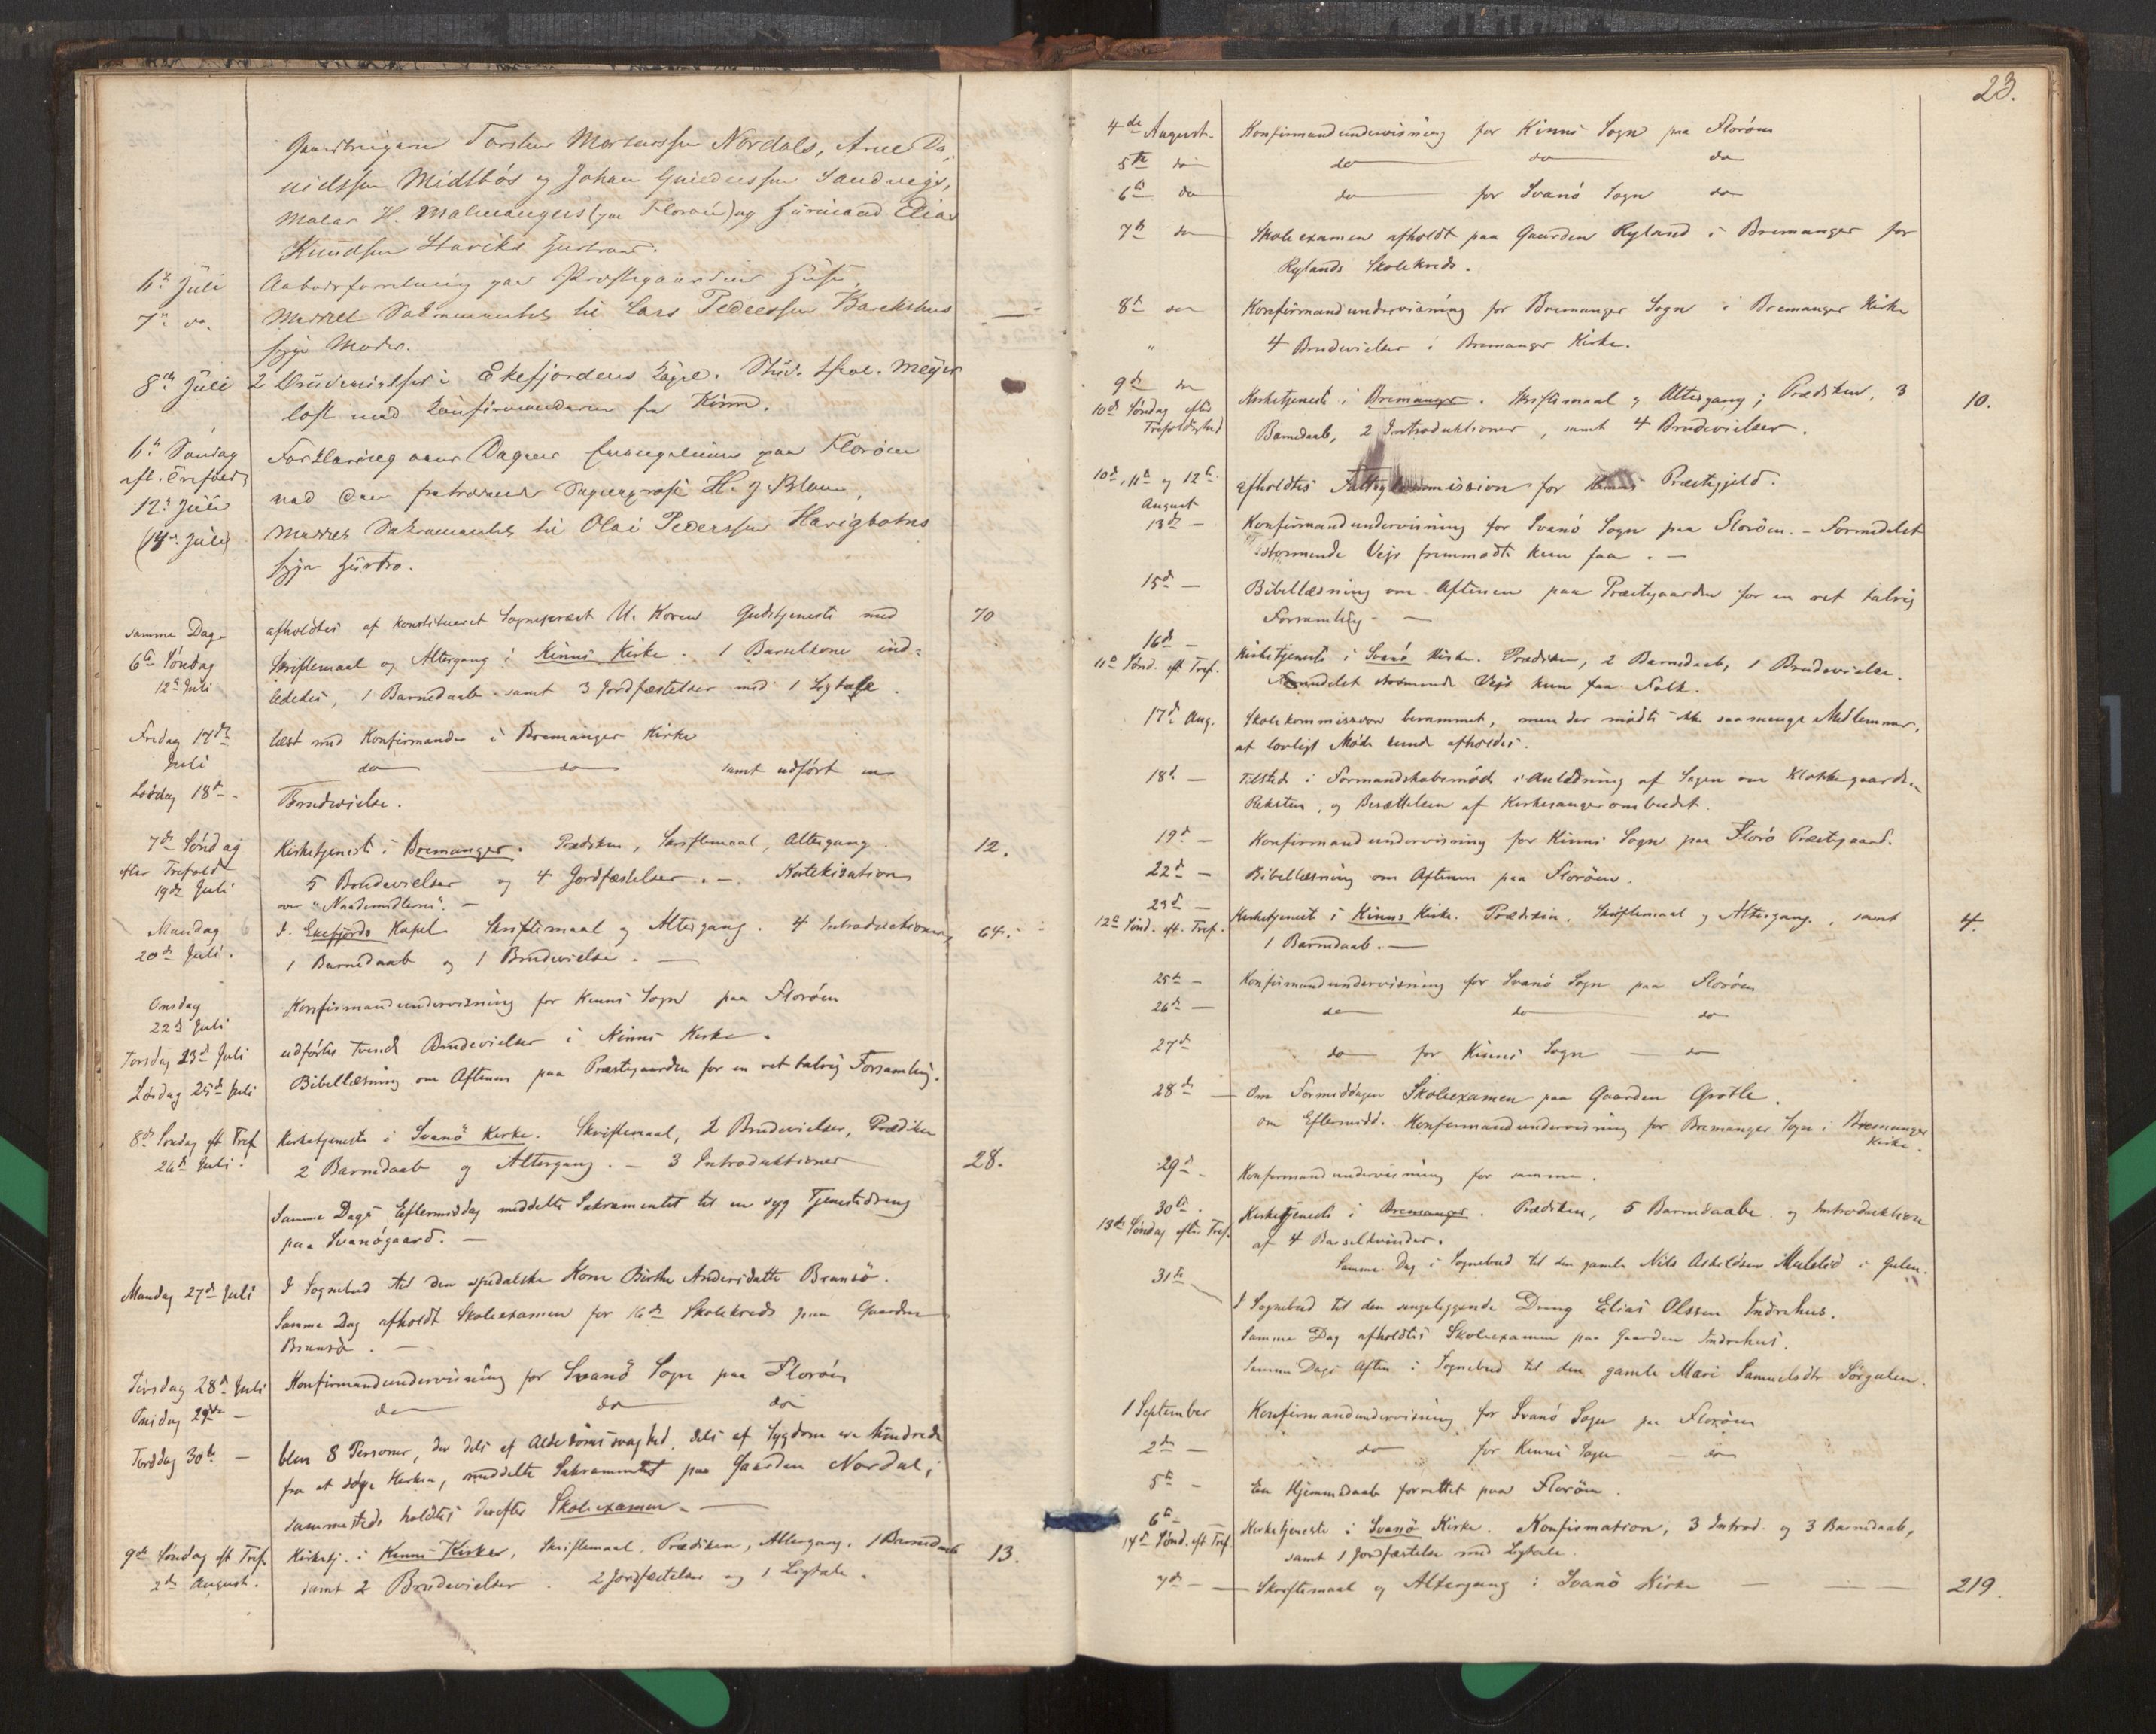 Gaardbrugerne Torsten Mortensen Nordals, Arne Da-
nielssen Midtbös og Johan Sandvigs,
Maler H. Malmangers (paa Florøen) og Huusmand Elias
Knudsen Staviks Hustruer.
6te Juli Aabodsforretning paa Præstegaardens Huse.
7de do. Meddelt Sakramentet til Lars Pederssen Barkshus
syge Moder.
8de Juli 2 Brudevielser i Ekefjordens Kapel. Stud. theol. Meyer
læst med Konfirmanderne fra Kinn.
6te Søndag Forklaring over Dagens Evangelium paa Florøen
eft. Trefold. ved den fratrædende Sognepræst H. J. Blom.
12te Juli
(14de Juli) Meddelt Sakramentet til Olai Pederssen Havigbotns
syge Hustro.
samme Dag afholdtes af konstitueret Sognepræst U. Koren Gudstjeneste med 70
6te Søndag Skriftemaal og Altergang i Kinns Kirke. 1 Barselkone ind-
12te Juli lededes, 1 Barnedaab samt 3 Jordfæstelser med 1 Ligtale.
Fredag 17de læst med Konfirmander i Bremanger Kirke
Juli
Lørdag 18de - do do samt udført en
Brudevielse.
7de Søndag Kirketjeneste i Bremanger. Prædiken, Skriftemaal, Altergang. 12.
efter Trefold. 5 Brudevielser og 4 Jordfæstelser. - Katekisation
19de Juli over "Naademidlerne". -
Mandag I Ekefjords Kapel Skriftemaal og Altergang. 4 Introduktioner, 64.
20de Juli. 1 Barnedaab og 1 Brudevielse. -
Onsdag Konfirmandundervisning for Kinns Sogn paa Florøen
22de Juli
Torsdag 23de Juli udførtes tvende Brudevielser i Kinns Kirke.
Lørdag 25de Juli Bibellæsning om Aftenen paa Præstegaarden for en ret talrig Forsamling.
8de Søndag eft. Tref. Kirketjeneste i Svanö Kirke. Skriftemaal, 2 Brudevielser, Prædiken
26de Juli. 2 Barnedaab og Altergang. - 3 Introduktioner 28.
Samme Dags Eftermiddag meddelte Sakramentet til en syg Tjenestedreng
paa Svanögaard. -
Mandag 27de Juli I Sognebud til den spedalske Kone Birthe Andersdatter Brunsö.
Samme Dag afholdt Skoleexamen for 16de Skolekreds paa Gaarden
Brunsö. -
Tirsdag 28de Juli Konfirmandundervisning for Svanö Sogn paa Florøen
Onsdag 29de - do do do
Torsdag 30te - blev 8 Personer, der dels af Alderdomssvaghed, dels af Sygdom ere hindrede
fra at søge Kirken, meddelte Sakramentet paa Gaarden Nordal;
sammesteds holdtes derefter Skoleexamen. -
9de Søndag eft. Tref. Kirketj. i Kinns Kirke, Skriftemaal, Prædiken, Altergang, 1 Barnedaab 13.
2de August. samt 2 Brudevielser. 2 Jordfæstelser og 1 Ligtale.
23.
4de August. Konfirmandundervisning for Kinns Sogn paa Florøen
5te do do do do
6te do do for Svanö Sogn do
7de do Skoleexamen afholdt paa Gaarden Ryland i Bremanger for
Rylands Skolekreds.
8de do Konfirmandundervisning for Bremanger Sogn i Bremanger Kirke
" 4 Brudevielser i Bremanger Kirke.
9de do Kirketjeneste i Bremanger. Skriftemaal og Altergang; Prædiken, 3 10.
10de Søndag efter Trefoldighed Barnedaab, 2 Introduktioner, samt 4 Brudevielser.
10de, 11te og 12te August afholdtes Fattigkommission for Kinns Præstegjeld.
13de - Konfirmandundervisning for Svanö Sogn paa Florøen. - Formedelst
stormende Vejr fremmødte kun faa. -
15de - Bibellæsning om Aftenen paa Præstegaarden for en ret talrig
Forsamling. -
16de - Kirketjeneste i Svanö Kirke. Prædiken, 2 Barnedaab, 1 Brudevielse.
11te Sönd. eft. Tref. Formedelst stormende Vejr kun faa Folk.
17de Aug. Skolekommission berammet, men der mødte ikke saa mange Medlemmer,
at lovligt Møde kunde afholdes.
18de - Tilstede i Formandskabsmøde i Anledning af Sagen om Klokkergaarden
Reksten, og Besættelsen af Kirkesangerombudet.
19de - Konfirmandundervisning for Kinns Sogn paa Florø Præstegaard.
22de - Bibellæsning om Aftenen paa Florøen.
23de - Kirketjeneste i Kinns Kirke. Prædiken. Skriftemaal og Altergang, samt 4.
12te Sönd. eft. Tref. 1 Barnedaab. -
25de - Konfirmandundervisning for Svanö Sogn paa Florøen
26de - do do do
27de do for Kinns Sogn - do
28de - Om Formiddagen Skoleexamen paa Gaarden Grotle.
om Eftermidd. Konfirmandundervisning for Bremanger Sogn i Bremanger
Kirke.
29de - Konfirmandundervisning for samme.
30te. Kirketjeneste i Bremanger. Prædiken, 5 Barnedaabe og Introduktion
13de Søndag efter Tref. af 4 Barselkvinder.
Samme Dag i Sognebud til den gamle Nils Askildsen Mulelid i Gulen.
31te I Sognebud til den sengeliggende Dreng Elias Olssen Indrehus.
Samme Dag afholdtes Skoleexamen paa Gaarden Indrehus.
Samme Dags Aften i Sognebud til den gamle Mari Samuelsdtr Sørgulen.
1 September Konfirmandundervisning for Svanö Sogn paa Florøen
2de - do for Kinns Sogn - do
5te - En Hjemmedaab forrettet paa Florøen.
6te - Kirketjeneste i Svanö Kirke. Konfirmation, 3 Introd. og 3 Barnedaab,
14de Sönd. eft. Tref. samt 1 Jordfæstelse med Ligtale.
7de - - Skriftemaal og Altergang i Svanö Kirke - - - 219.